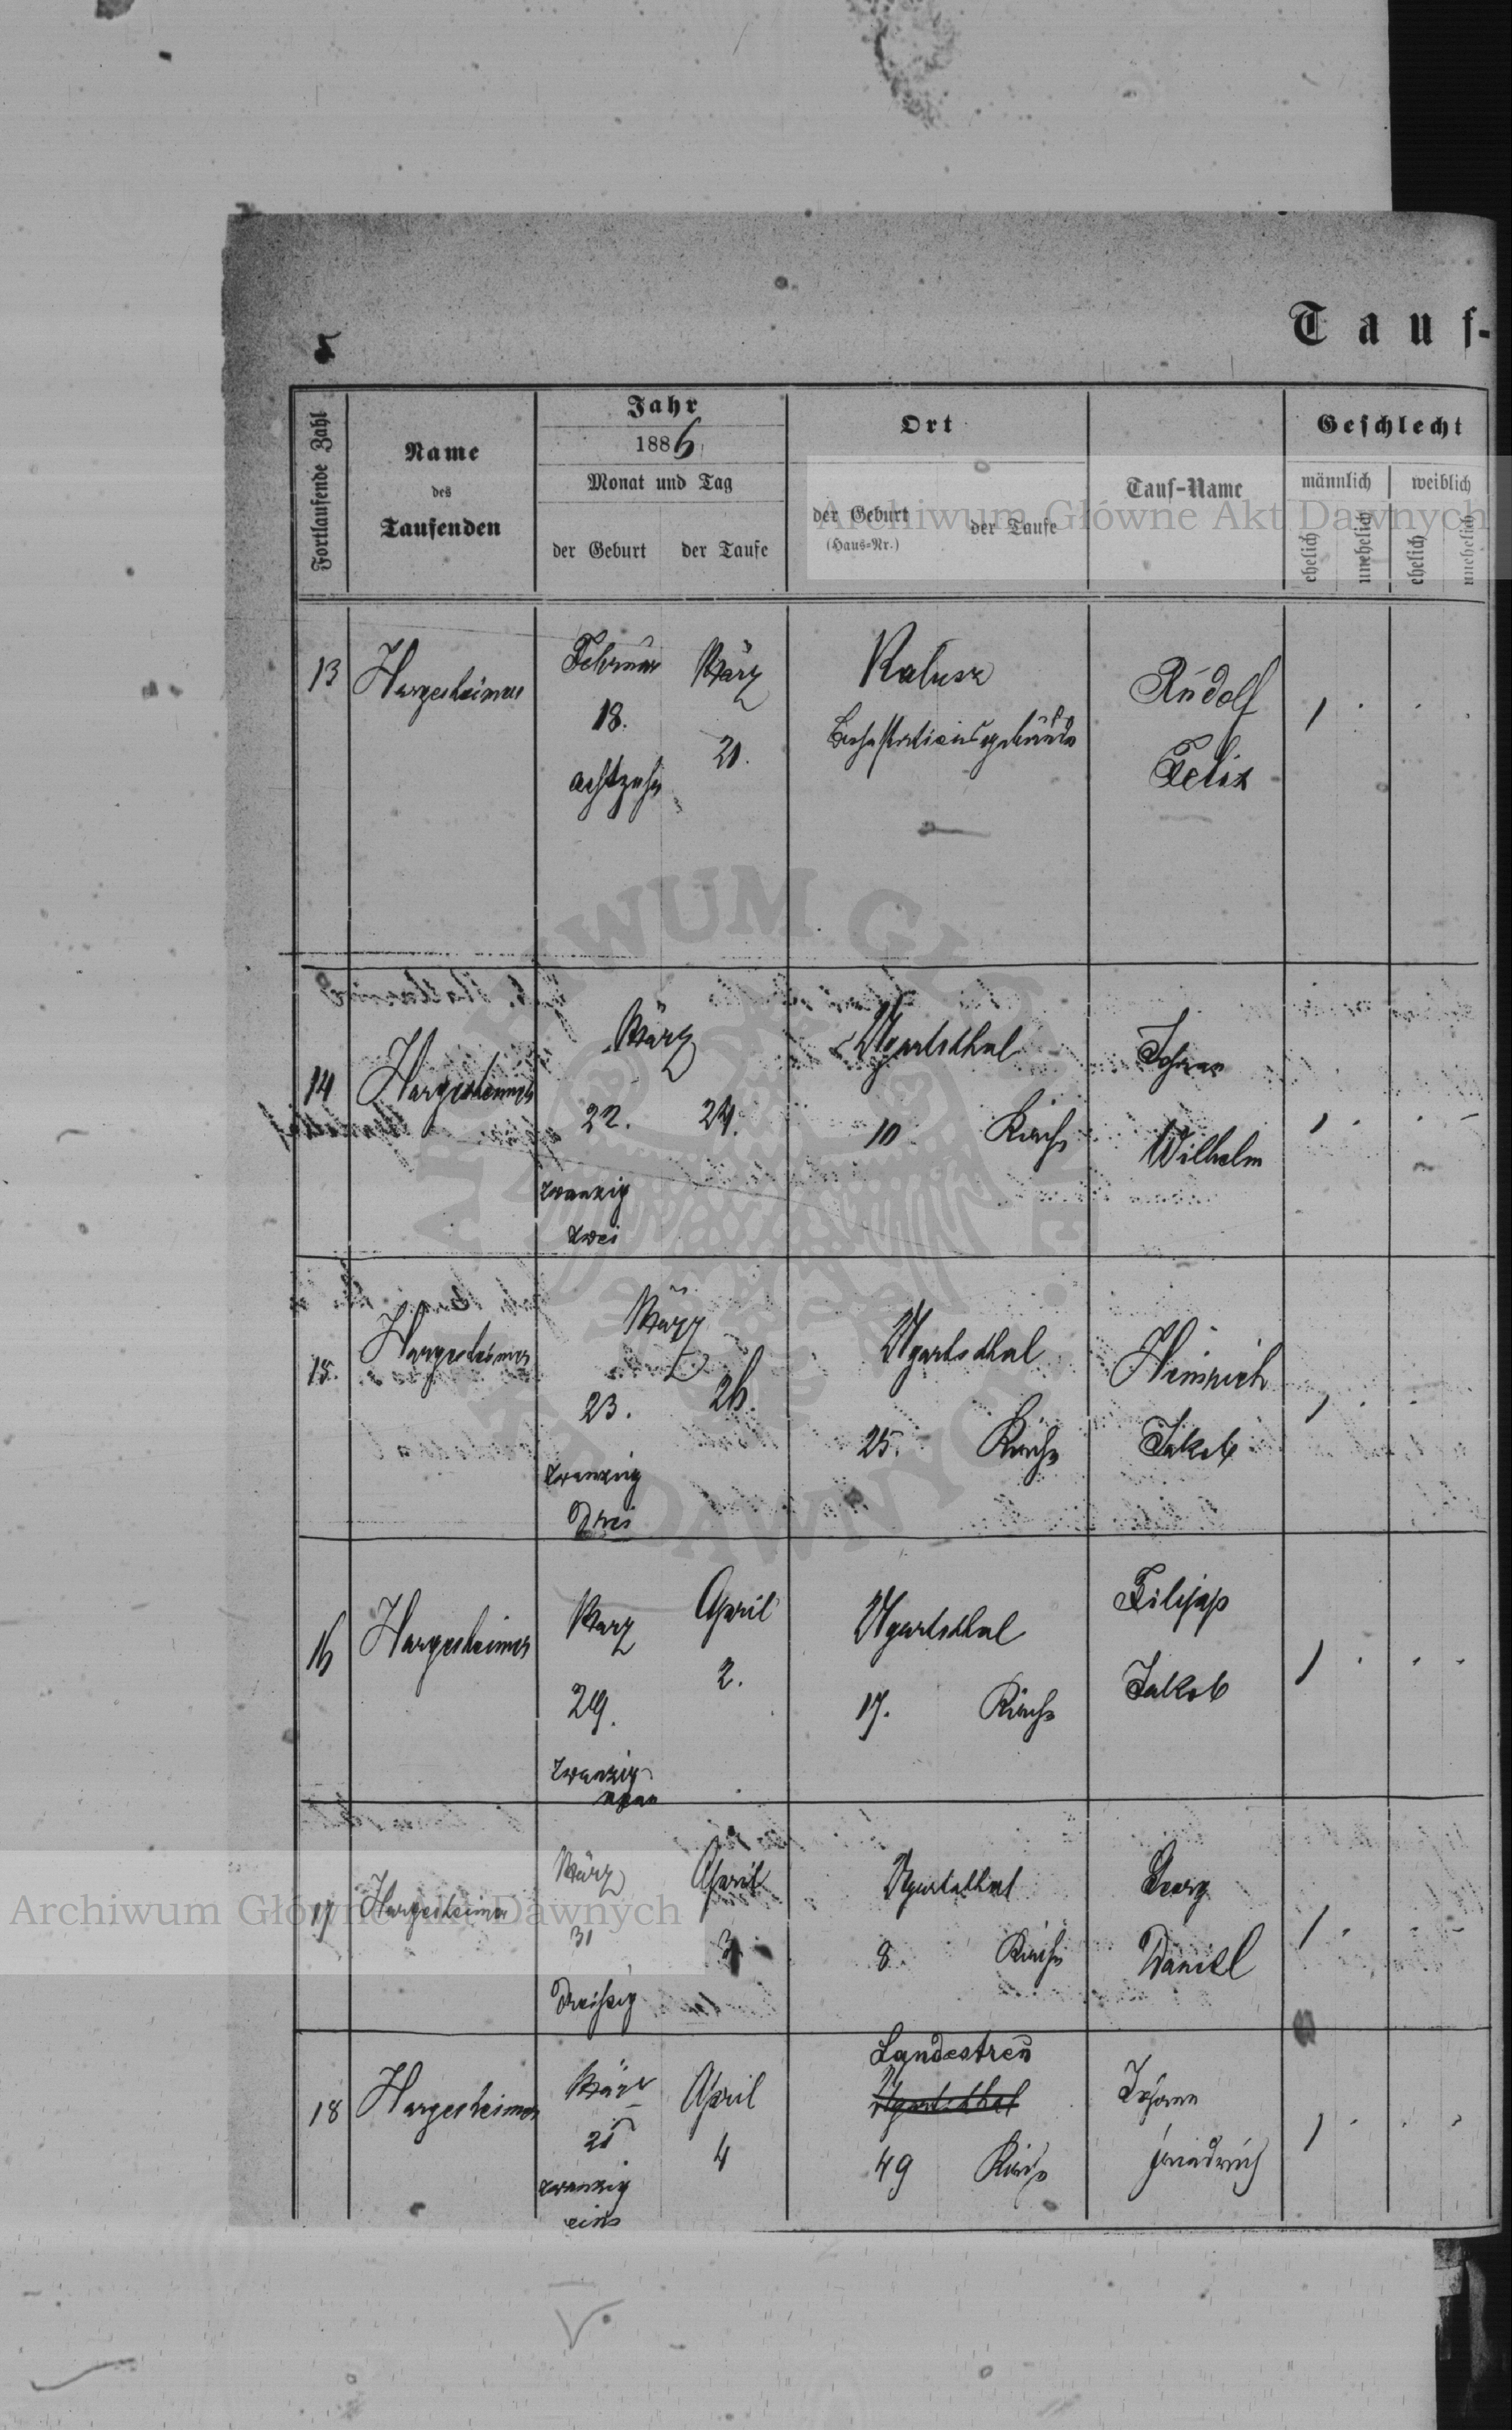 Tauf-
5
Fortlaufende Zahl
Name
des
Taufenden
Jahr
1886
Monat und Tag
der Geburt
der Taufe
Ort
der Geburt
(Haus-Nr.)
der Taufe
Tauf-Name
Geschlecht
männlich
weiblich
ehelich
unehelich
ehelich
unehelich
13
Hargesheimer
Februar
18.
achtzehn
März
21.
Kalusz
Rudolf
Felix
1
14
Hargesheimer
März
22.
24.
zwanzig
zwei
Ugartsthal
10
Kirche
Johann
Wilhelm
1
15.
Hargesheimer
März
23.
26.
zwanzig
Drei
Ugartsthal
25.
Kirche
Heinrich
Jakob
1
16
Hargesheimer
März
29.
zwanzig
neun
April
2.
Ugartsthal
17.
Kirche
Filipp
Jakob
1
17
Hargesheimer
März
31
Dreißig
April
3
Ugartsthal
8.
Kirche
Georg
Daniel
1
18
Hargesheimer
März
21
zwanzig
eins
April
4
Landestreu
Ugartsthal
49
Kirche
Johann
Friedrich
1
Archiwum Główne Akt Dawnych
Archiwum Główne Akt Dawnych
ARCHIWUM GŁÓWNE AKT DAWNYCH